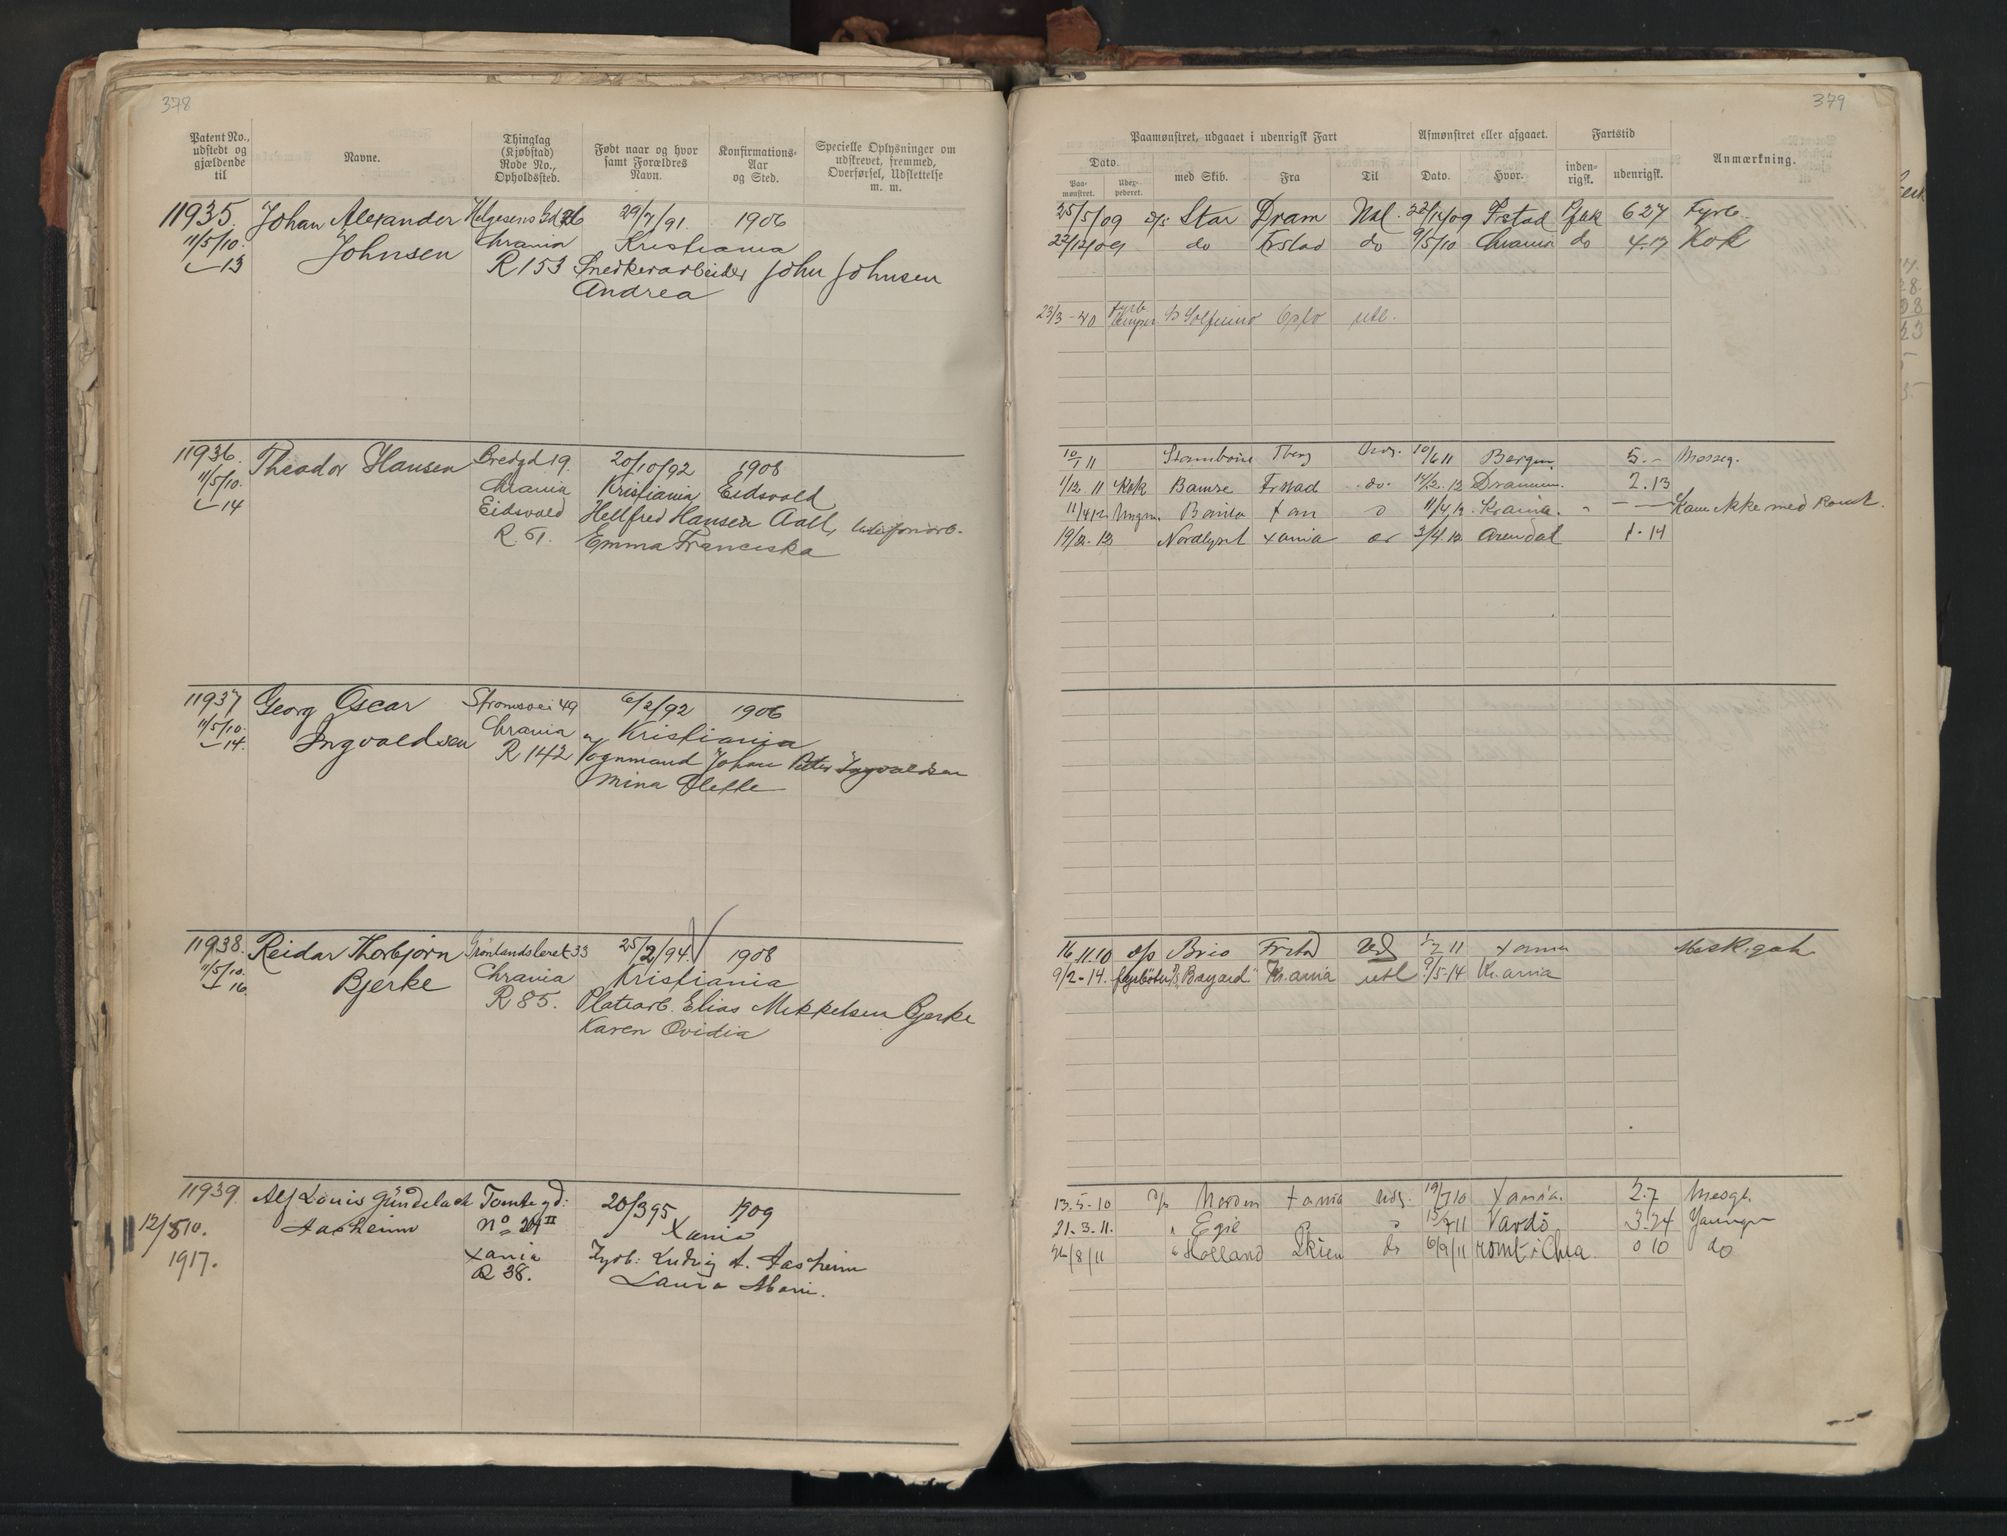 378
Patent No., udstedt og gjældende til
Navne.
Thinglag (Kjøbstad) Rode No., Opholdssted.
Født naar og hvor samt Forældres Navn.
Konfirmations-Aar og Sted.
Specielle Oplysninger om udskrevet, fremmed, Overførsel, Udslettelse m. m.
11935. Johan Alexander Helgesens Gd 26 29/7/91. 1906
11/5/10. Johnsen Chrania Kristiania
13 R 153 Snedkerarbeider John Johnsen
Andrea
11936. Theodor Hansen Bredgd 19. 20/10/92 1908
11/5/10. Chrania Kristiania Eidsvold
14 Eidsvold Hellfred Hansen Aall,
R. 61. Emma Franciska
11937 Georg Oscar Strømsvei 49 6/2/92 1906
11/5/10. Ingvaldsen Chrania Kristiania
14. R 142 Vognmand Johan Petter Ingvaldsen
Mina Olette
11938. Reidar Thorbjørn Grønlandsleret 33 25/2/94. 1908
11/5/10. Bjerke Chrania Kristiania
16. R 85. Platearb. Elias Mikkelsen Bjerke
Karen Ovidia
11939. Alf Louis Gundelach Tomtegd: 20/3 95 1909
12/5 10. Aasheim No 24 II Xania
1917. Xania Fyrb: Ludvig A. Aasheim
R 38. Laura Marie.
379
Paamønstret, udgaaet i udenrigsk Fart
Afmønstret eller afgaaet.
Fartstid
Anmærkning.
Dato.
Paamønstret. Udexpederet. med Skib. Fra Til Dato. Hvor. indenrigsk. udenrigsk.
25/5/09 d/s Star Dram Udl. 22/12/09 Frstad Pfak 6 27 Fyrb.
22/12/09 do Frstad do 9/5/10 Chrania do 4.17 Kok
23/3-40 Solferino Oslo utl.
10/1 11 Tberg Udg. 10/6 11 Bergen. 5.- Messeg.
1/12. 11 Kok Bamse Frstad do. 14/2. 12 Drammen. 2.13
11/4 12. Ungm. 11/4 12. Krania. - - Kom ikke med
19/2. 12 Nordlyset Xania 3/4 12 Arendal 1-14
16.11.10 d/s Brio Frstad Udg 11 Xania
9/2-14. fyrbøter "Bayard" Kr.ania utl 9/5-14 Kr.ania
13.5-10 D/s Norden Xania Udg. 19/7 10 Xania. 2.7 Mesgt.
21.3.11. " Egil " 15/7 11 Vardø 3.24 Younger
26/8/11 " Holland Skien do 6/9/11 rømt i Chra. 0 10 do